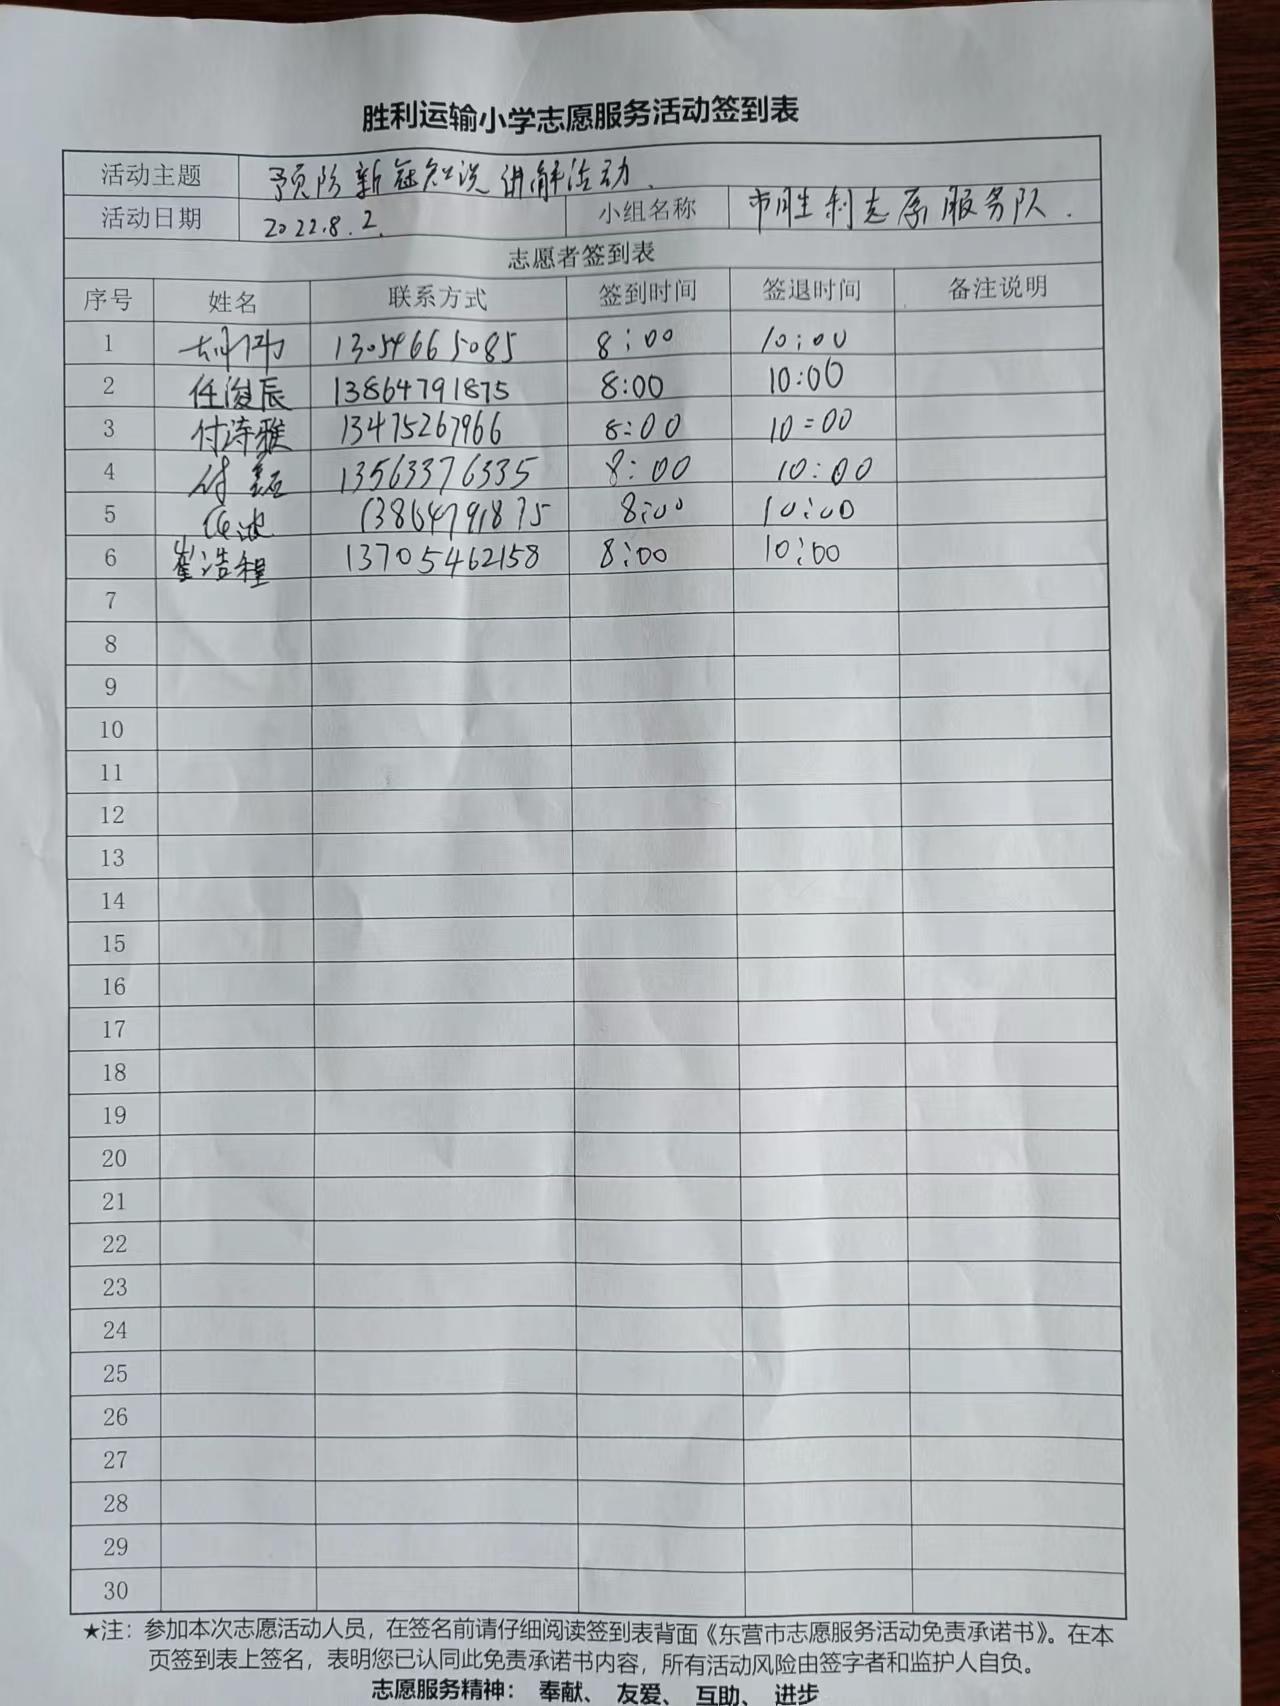 胜利运输小学志愿服务活动签到表
活动主题 预防新冠知识讲解活动.
活动日期 2022.8.2. 小组名称 市胜利志愿服务队.
志愿者签到表
序号 姓名 联系方式 签到时间 签退时间 备注说明
1 13054665085 8:00 10:00
2 任俊辰 13864791875 8:00 10:00
3 付涛雅 13475267966 8:00 10:00
4 付 13563376335 8:00 10:00
5 任波 13864791875 8:00 10:00
6 崔浩程 13705462158 8:00 10:00
7
8
9
10
11
12
13
14
15
16
17
18
19
20
21
22
23
24
25
26
27
28
29
30
★注：参加本次志愿活动人员，在签名前请仔细阅读签到表背面《东营市志愿服务活动免责承诺书》。在本
页签到表上签名，表明您已认同此免责承诺书内容，所有活动风险由签字者和监护人自负。
志愿服务精神： 奉献、 友爱、 互助、 进步